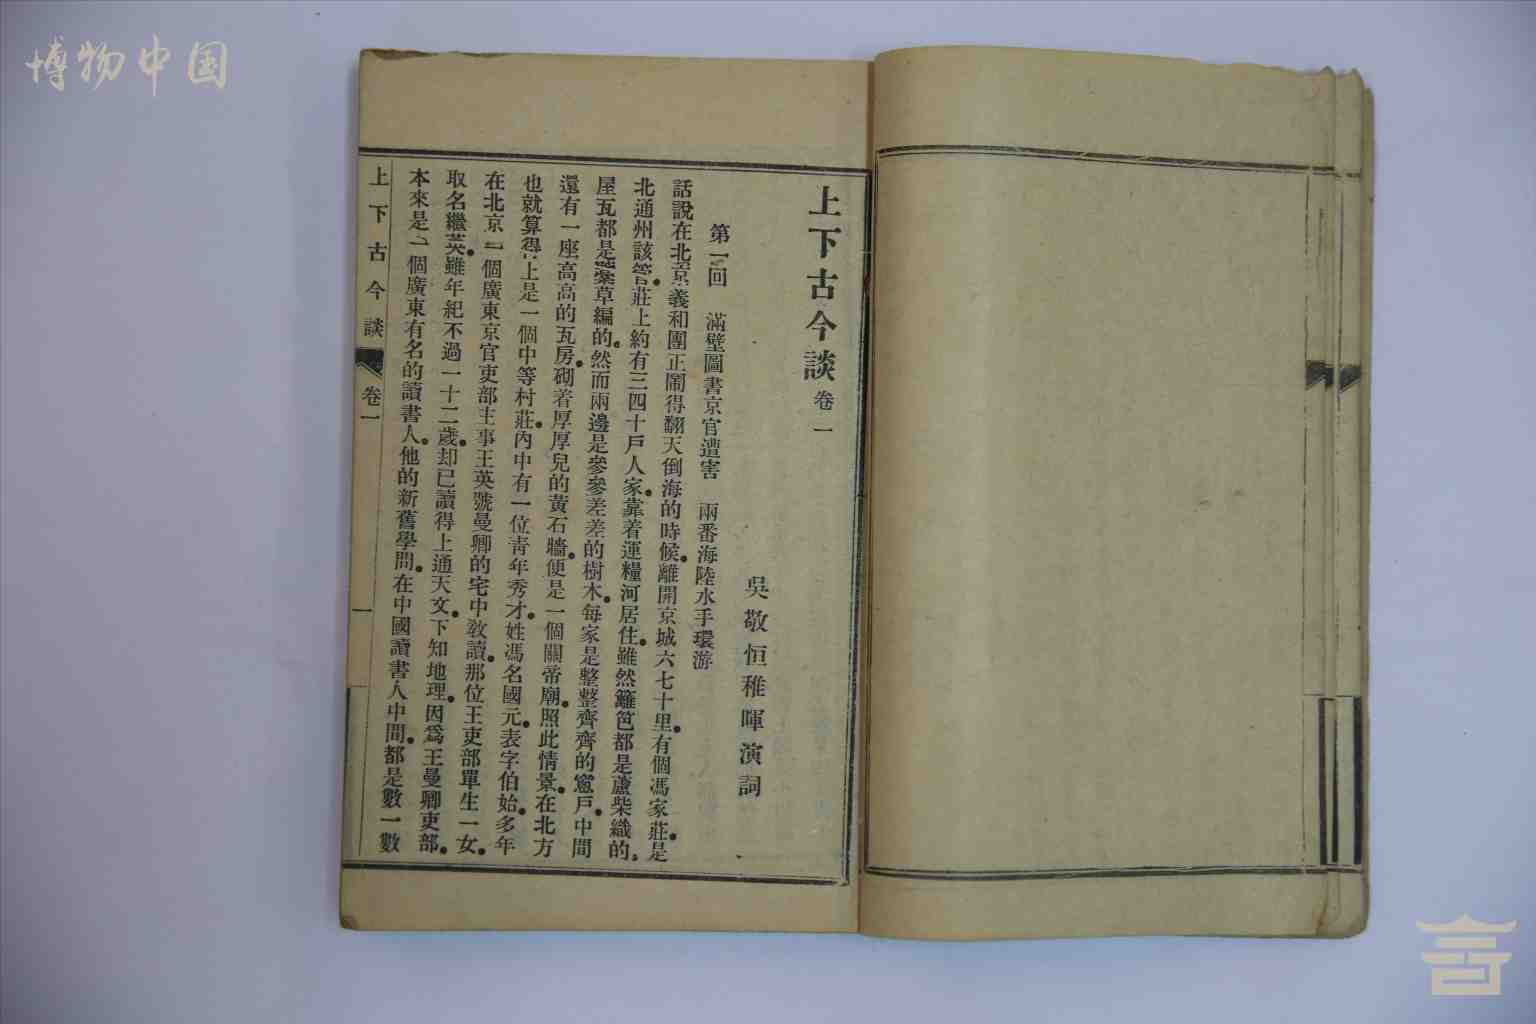 博物中国
上下古今談 卷一
吳敬恒稚暉演詞
第一回 滿壁圖書京官遭害 兩番海陸水手環游
話說在北京義和團正鬧得翻天倒海的時候。離開京城六七十里。有個馮家莊。是
北通州該管。莊上約有三四十戶人家。靠着運糧河居住。雖然籬笆都是蘆柴織的。
屋瓦都是藁草編的。然而兩邊是參參差差的樹木。每家是整整齊齊的窻戶。中間
還有一座高高的瓦房。砌着厚厚兒的黃石牆。便是一個關帝廟。照此情景。在北方
也就算得上是一個中等村莊。內中有一位靑年秀才。姓馮名國元。表字伯始。多年
在北京一個廣東京官吏部主事王英號曼卿的宅中敎讀。那位王吏部單生一女。
取名繼英。雖年紀不過一十二歲。却已讀得上通天文。下知地理。因爲王曼卿吏部。
本來是一個廣東有名的讀書人。他的新舊學問。在中國讀書人中間。都是數一數
上下古今談 卷一 一